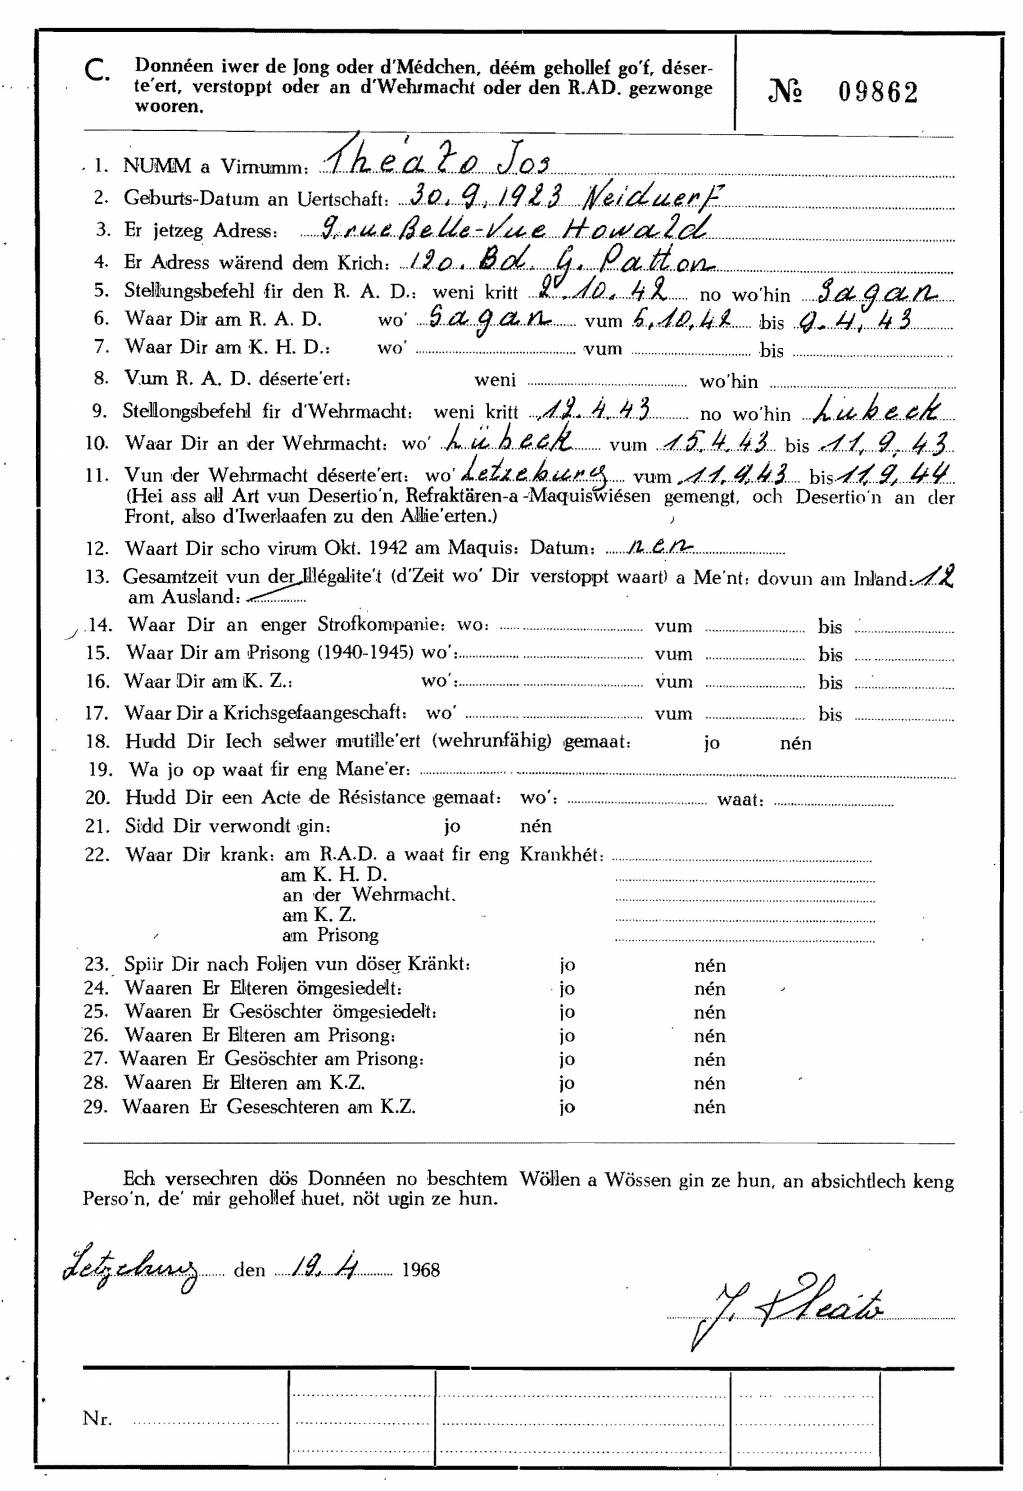 C. Donnéen iwer de Jong oder d'Médchen, déém gehollef go'f, déser-
te'ert, verstoppt oder an d'Wehrmacht oder den R.AD. gezwonge
wooren.
№ 09862
1. NUMM a Virnumm: Théato Jos
2. Geburts-Datum an Uertschaft: 30.9.1923 Neiduerf
3. Er jetzeg Adress: 9, rue Belle-Vue Howald
4. Er Adress wärend dem Krich: 120. Bd. G. Patton
5. Stellungsbefehl fir den R. A. D.: weni kritt 2.10.42 no wo'hin Sagan
6. Waar Dir am R. A. D. wo' Sagan vum 6.10.42 bis 9.4.43
7. Waar Dir am K. H. D.: wo' vum bis
8. Vum R. A. D. déserte'ert: weni wo'hin
9. Stellongsbefehl fir d'Wehrmacht: weni kritt 12.4.43 no wo'hin Lübeck
10. Waar Dir an der Wehrmacht: wo' Lübeck vum 15.4.43 bis 11.9.43
11. Vun der Wehrmacht déserte'ert: wo' Letzeburg vum 11.9.43 bis 11.9.44
(Hei ass all Art vun Desertio'n, Refraktären-a-Maquiswiésen gemengt, och Desertio'n an der
Front, also d'Iwerlaafen zu den Allie'erten.)
12. Waart Dir scho virum Okt. 1942 am Maquis: Datum: nen
13. Gesamtzeit vun der Illégalite't (d'Zeit wo' Dir verstoppt waart) a Me'nt: dovun am Inland: 12
am Ausland:
14. Waar Dir an enger Strofkompanie: wo: vum bis
15. Waar Dir am Prisong (1940-1945) wo': vum bis
16. Waar Dir am K. Z.: wo': vum bis
17. Waar Dir a Krichsgefaangeschaft: wo' vum bis
18. Hudd Dir Iech selwer mutille'ert (wehrunfähig) gemaat: jo nén
19. Wa jo op waat fir eng Mane'er:
20. Hudd Dir een Acte de Résistance gemaat: wo': waat:
21. Sidd Dir verwondt gin: jo nén
22. Waar Dir krank: am R.A.D. a waat fir eng Krankhét:
am K. H. D.
an der Wehrmacht.
am K. Z.
am Prisong
23. Spiir Dir nach Foljen vun döser Kränkt: jo nén
24. Waaren Er Elteren ömgesiedelt: jo nén
25. Waaren Er Gesöschter ömgesiedelt: jo nén
26. Waaren Er Elteren am Prisong: jo nén
27. Waaren Er Gesöschter am Prisong: jo nén
28. Waaren Er Elteren am K.Z. jo nén
29. Waaren Er Geseschteren am K.Z. jo nén
Ech versechren dös Donnéen no beschtem Wöllen a Wössen gin ze hun, an absichtlech keng
Perso'n, de' mir gehollef huet, nöt ugin ze hun.
Letzeburg den 19.4 1968
J. Théato
Nr.